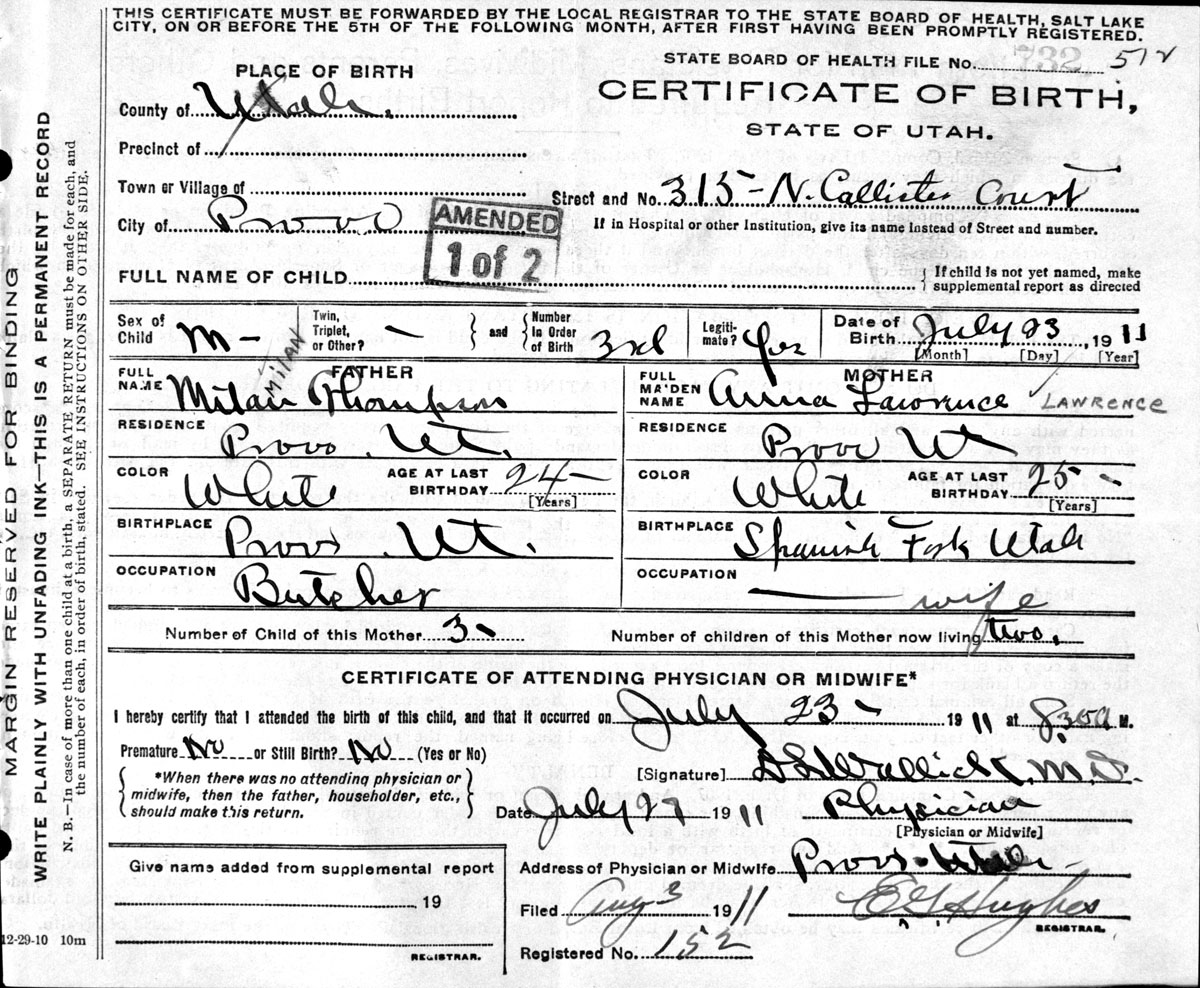 THIS CERTIFICATE MUST BE FORWARDED BY THE LOCAL REGISTRAR TO THE STATE BOARD OF HEALTH, SALT LAKE
CITY, ON OR BEFORE THE 5TH OF THE FOLLOWING MONTH, AFTER FIRST HAVING BEEN PROMPTLY REGISTERED.
STATE BOARD OF HEALTH FILE No. 512
PLACE OF BIRTH
CERTIFICATE OF BIRTH,
County of Utah.
STATE OF UTAH.
Precinct of
Town or Village of
Street and No. 315-N. Callister Court
City of Provo
If in Hospital or other Institution, give its name instead of Street and number.
AMENDED
1 of 2
FULL NAME OF CHILD
If child is not yet named, make
supplemental report as directed
Sex of Child M-
Twin, Triplet, or Other? -
and
Number in Order of Birth 3rd
Legiti-mate? Yes
Date of Birth July 23, 1911
[Month] [Day] [Year]
FATHER
MILAN
FULL NAME Milan Thompson
RESIDENCE Provo. Ut.
COLOR White
AGE AT LAST BIRTHDAY 24-
[Years]
BIRTHPLACE Provo. Ut.
OCCUPATION Butcher
MOTHER
FULL MAIDEN NAME Anna Lawrence LAWRENCE
RESIDENCE Provo Ut
COLOR White
AGE AT LAST BIRTHDAY 25-
[Years]
BIRTHPLACE Spanish Fork Utah
OCCUPATION wife
Number of Child of this Mother 3-
Number of children of this Mother now living two.
CERTIFICATE OF ATTENDING PHYSICIAN OR MIDWIFE*
I hereby certify that I attended the birth of this child, and that it occurred on July 23- 1911 at 8:30 A M.
Premature No or Still Birth? No (Yes or No)
*When there was no attending physician or
midwife, then the father, householder, etc.,
should make this return.
[Signature] M.D.
Date July 27 1911 Physician
[Physician or Midwife]
Address of Physician or Midwife Provo-Utah-
Give name added from supplemental report
19
REGISTRAR.
Filed Aug 2 1911 Hughes
REGISTRAR.
Registered No. 152
12-29-10 10m
MARGIN RESERVED FOR BINDING
WRITE PLAINLY WITH UNFADING INK—THIS IS A PERMANENT RECORD
N. B.—In case of more than one child at a birth, a SEPARATE RETURN must be made for each, and
the number of each, in order of birth, stated. SEE INSTRUCTIONS ON OTHER SIDE.